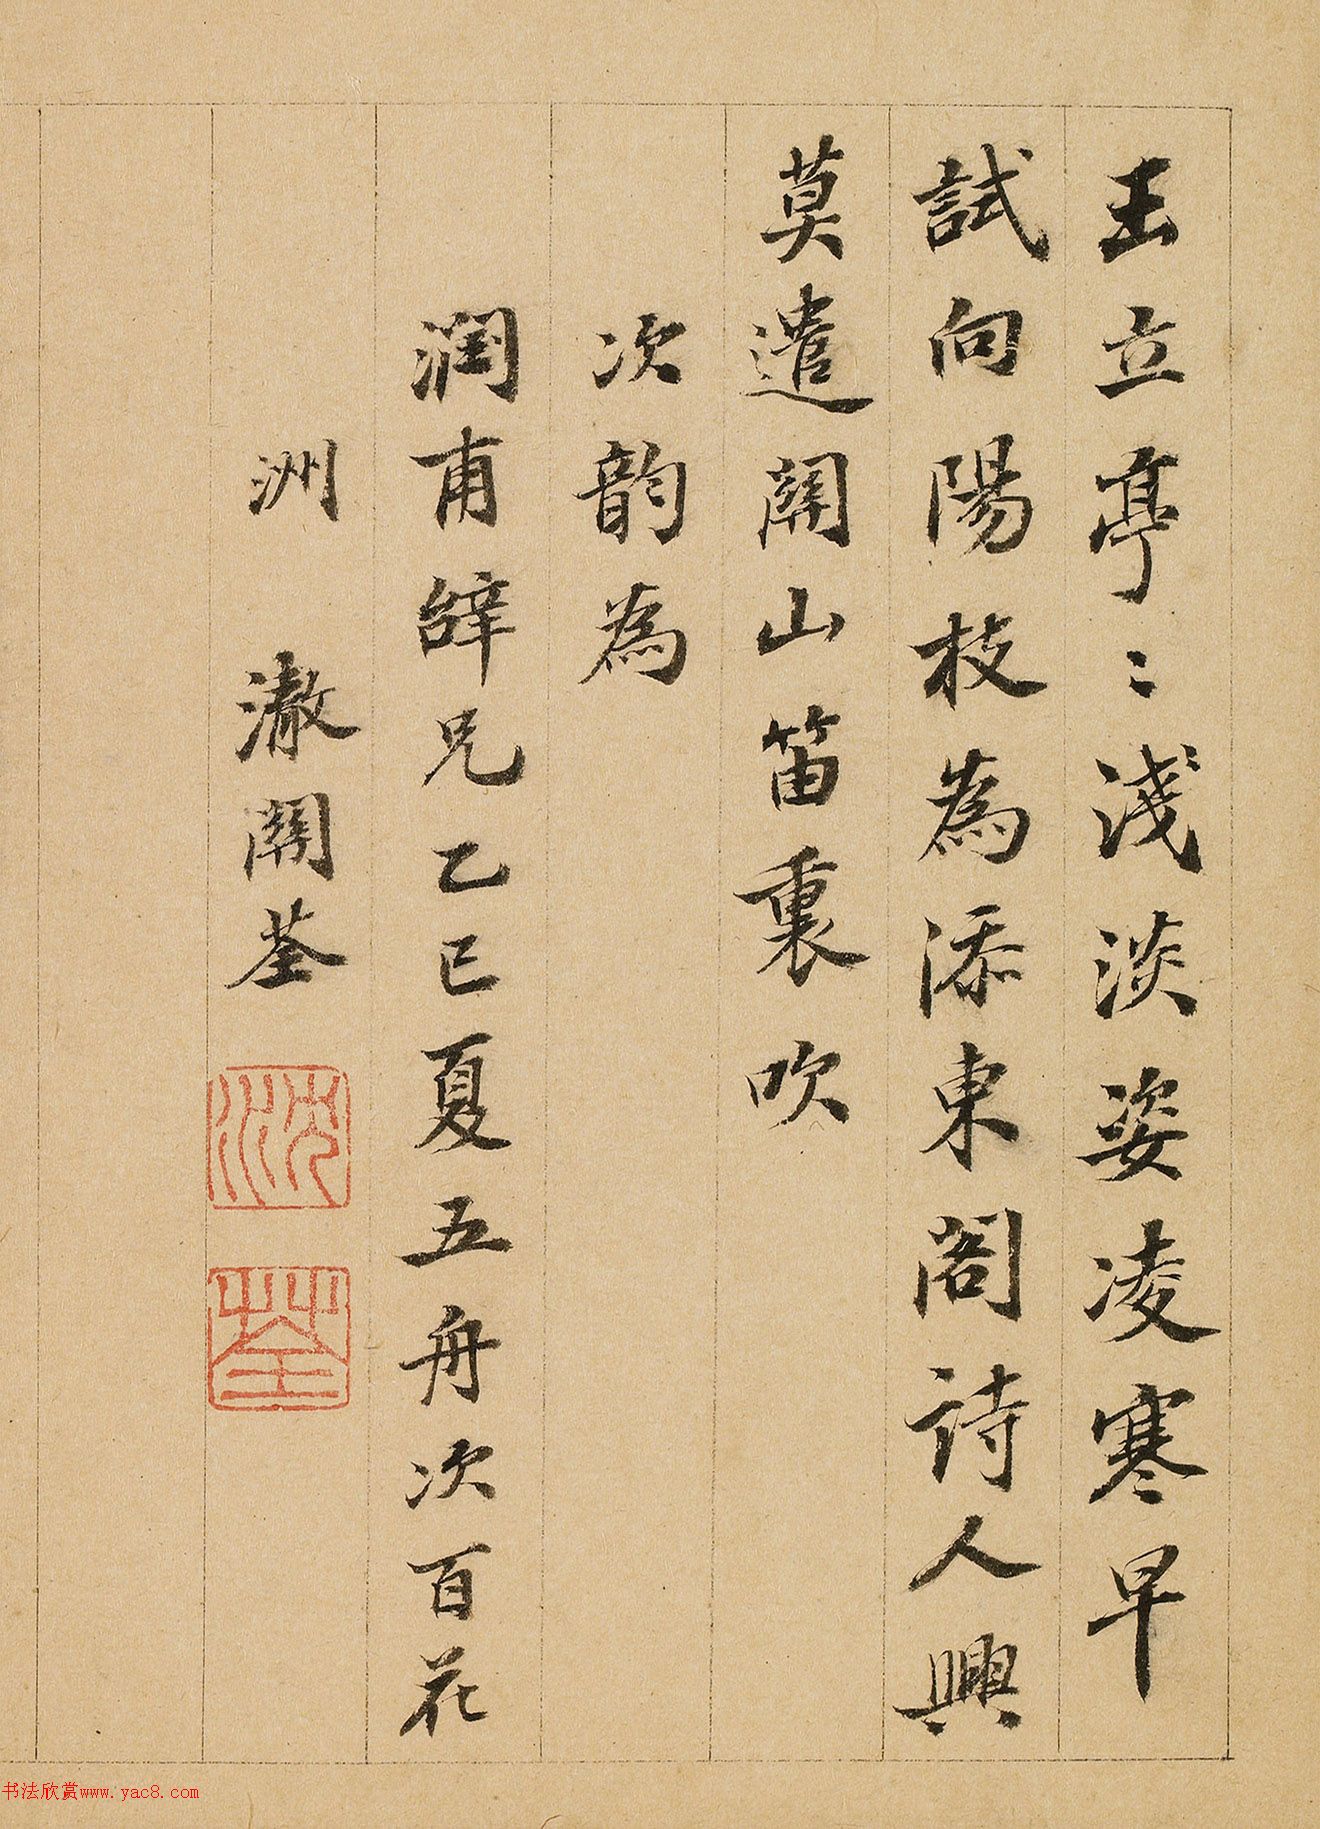 玉立亭〻淺淡姿凌寒早
試向陽枝為添東閣詩人興
莫遣關山笛裏吹
次韵為
潤甫辭兄乙巳夏五舟次百花
洲 澈關荃
沈
荃
书法欣赏www.yac8.com